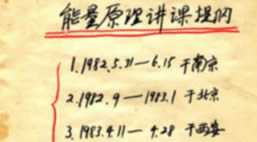 能量原理讲课提纲
1.1982.5.31—6.15 于南京
2.1982.9—1983.1 于北京
3.1983.4.11—4.28 于西安